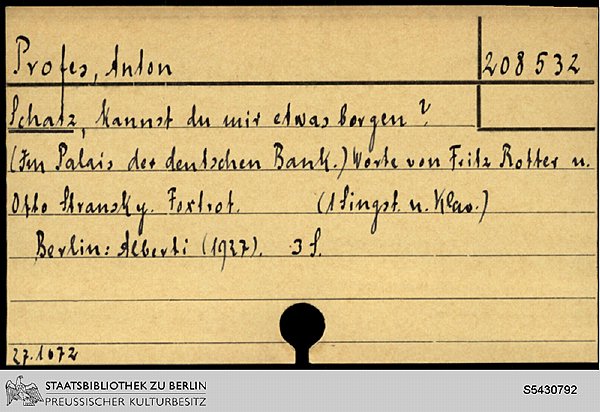 Profes, Anton
208 532
Schatz, kannst du mir etwas borgen?
(Im Palais der deutschen Bank.) Worte von Fritz Rotter u.
Otto Stransky. Foxtrot. (1 Singst. u. Klav.)
Berlin: Alberti (1927). 3 S.
27.1672
STAATSBIBLIOTHEK ZU BERLIN
PREUSSISCHER KULTURBESITZ
S5430792